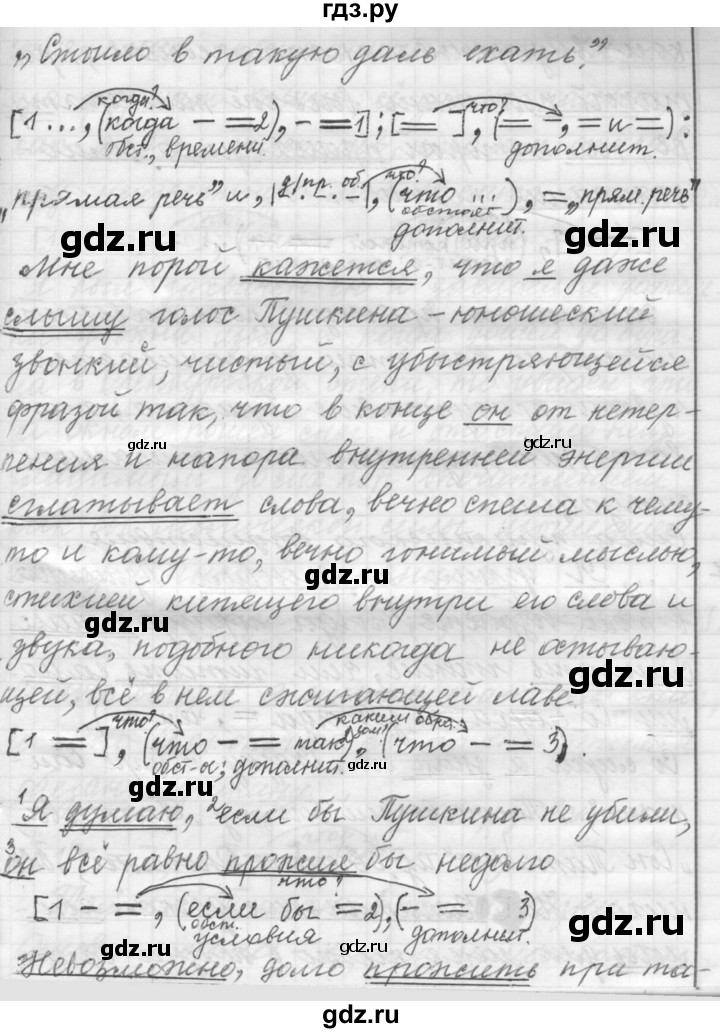 гдз.ру
„Стыло в такую даль ехать."
когда? что?
[1 ..., (когда – =2), – =1]; [= ], (= =, = и =):
обст. времени. дополнит.
„прямая речь" и, |2!.пр. об.–|, (что ...), =„прям. речь"
что? обстоят.
дополнит.
Мне порой кажется, что я даже
слышу голос Пушкина – юношеский
звонкий, чистый, с убыстряющейся
фразой так, что в конце он от нетер-
пения и напора внутренней энергии
сглатывает слова, вечно спеша к чему-
то и кому-то, вечно гонимый мыслью,
стихией кипящего внутри его слова и
звука, подобного никогда не остываю-
щей, всё в нем сжигающей лаве.
что? каким обр.
[1 =], (что – = так), (что – = 3).
обст-ва; дополнит.
1Я думаю, 2если бы Пушкина не убили,
3он всё равно прожил бы недолго
что?
[1 – =, (если бы = 2), (– = 3)
обст. условия дополнит.
Невозможно, долго прожить при та-
gdz.ru
gdz.ru
gdz.ru
gdz.ru
gdz.ru
gdz.ru
gdz.ru
gdz.ru
gdz.ru
gdz.ru
gdz.ru
gdz.ru
gdz.ru
gdz.ru